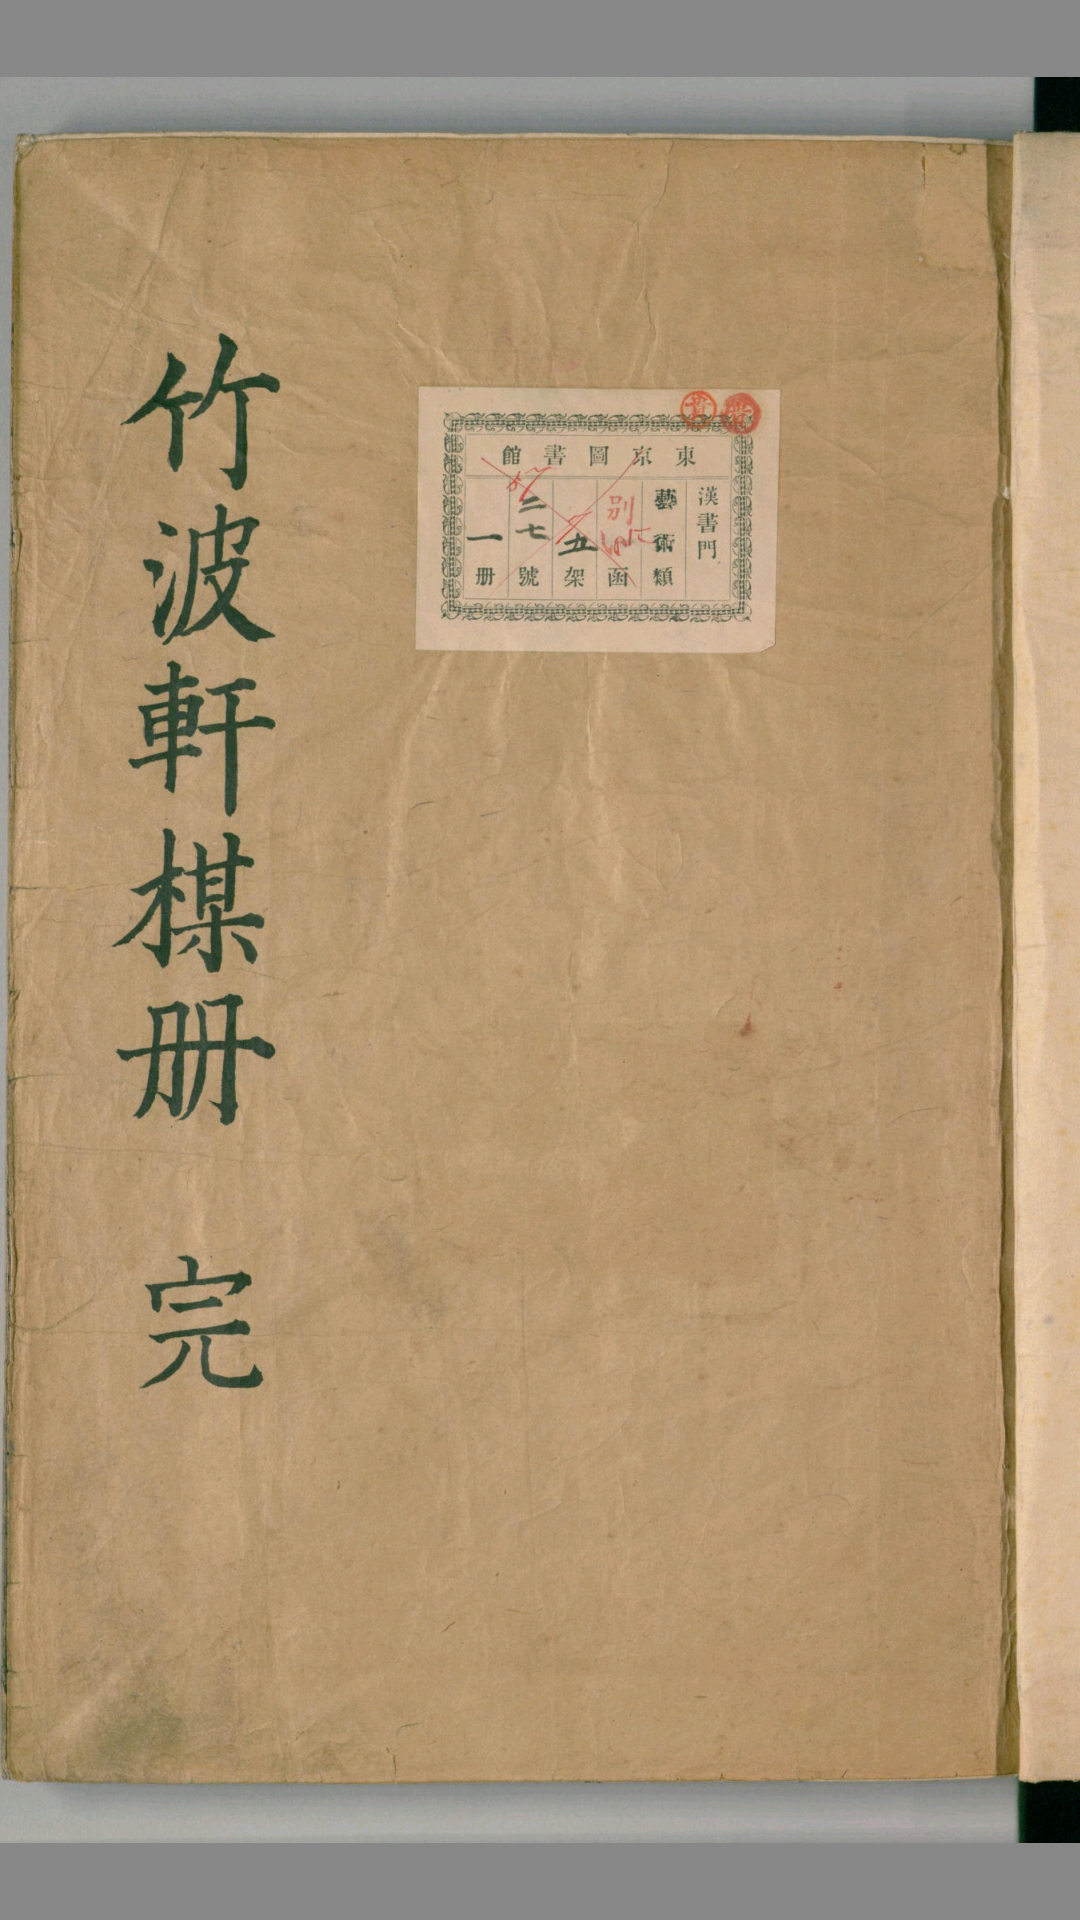 竹波軒楳册 完
東京圖書館
漢書門
藝術類
別 函
五架
二七號
一册